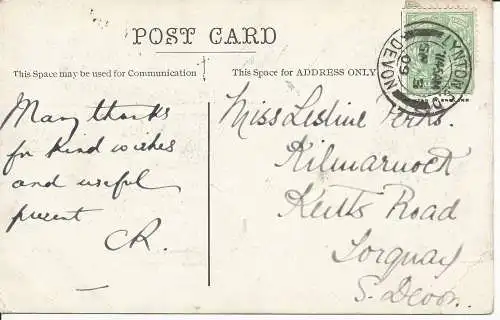 POST CARD
This Space may be used for Communication
This Space for ADDRESS ONLY
LYNTON
DEVON
09
Many thanks
for kind wishes
and useful
present
CR.
Miss Lesline
Kilmarnock
Road
Torquay
S. Devon.